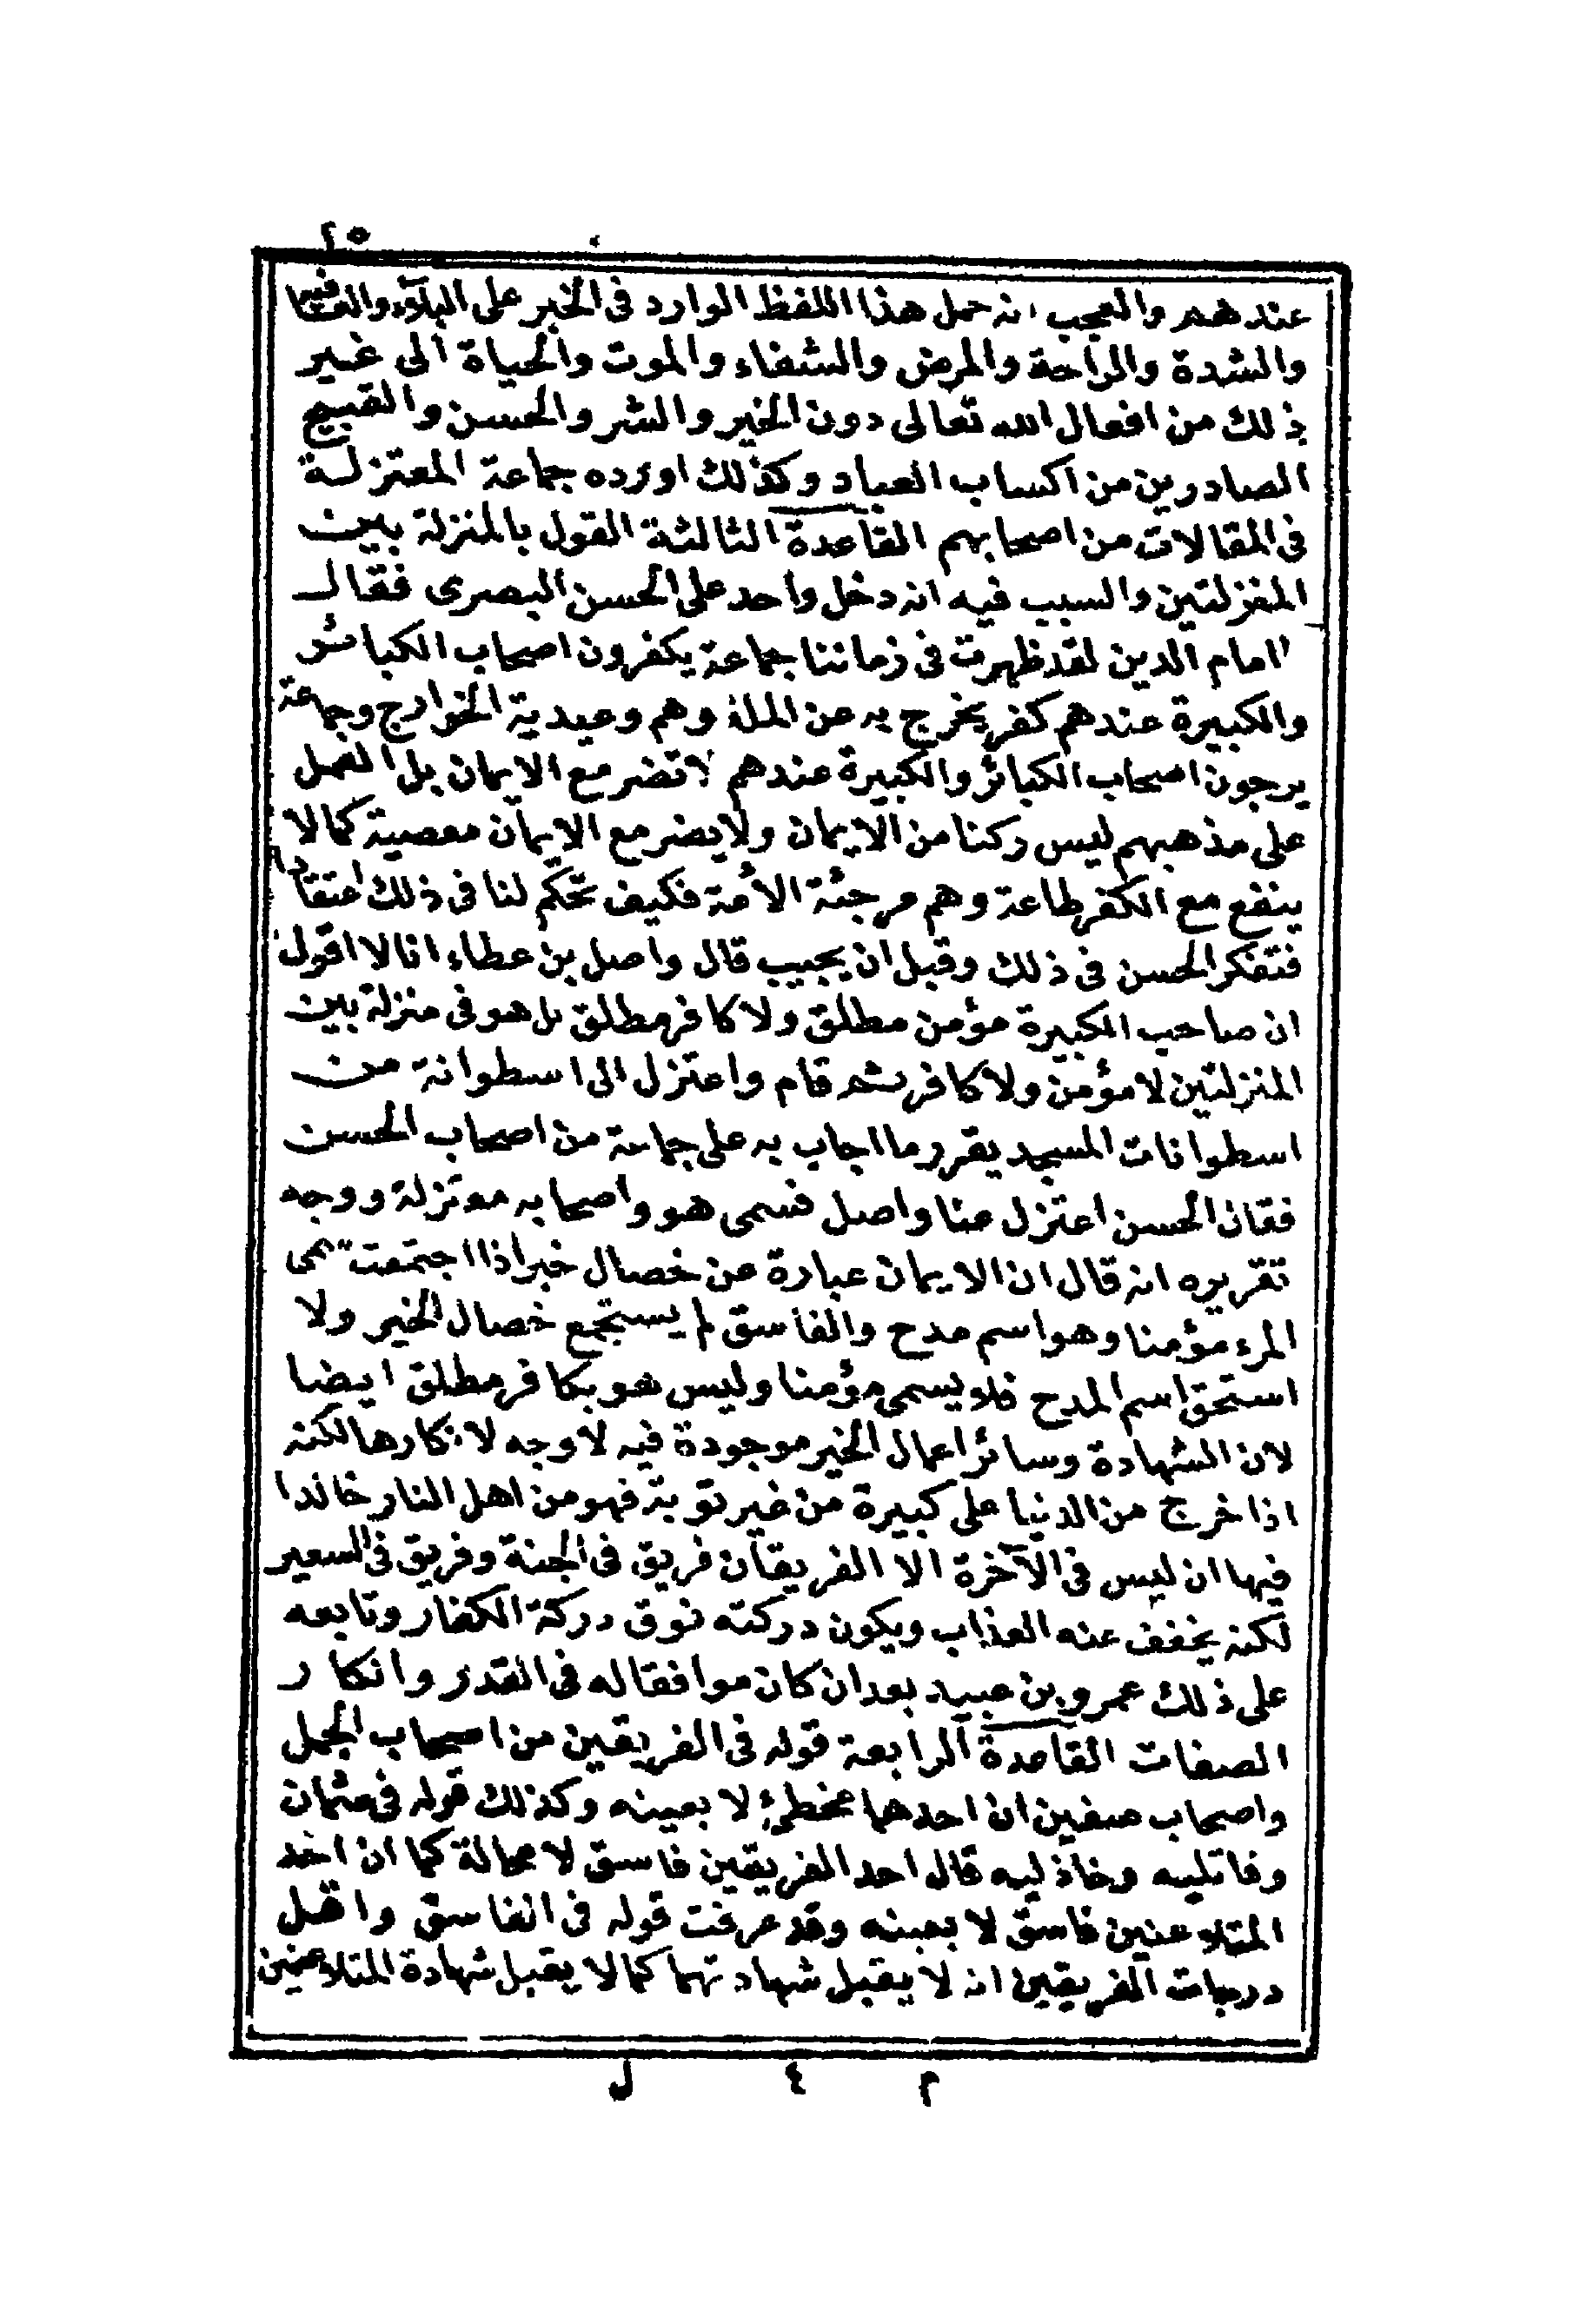 ٢٥
عندهم والعجب انه حمل هذا اللفظ الوارد فى الخبر على البلاء والعافية
والشدة والراحة والمرض والشفاء والموت والحياة الى غير
ذلك من افعال الله تعالى دون الخير والشر والحسن والقبيح
الصادرين من اكساب العباد وكذلك اورده جماعة المعتزلة
فى المقالات من اصحابهم القاعدة الثالثة القول بالمنزلة بين
المنزلتين والسبب فيه انه دخل واحد على الحسن البصرى فقال
امام الدين لقد ظهرت فى زماننا جماعة يكفرون اصحاب الكبائر
والكبيرة عندهم كفر يخرج به عن الملة وهم وعيدية الخوارج وجماعة
يرجون اصحاب الكبائر والكبيرة عندهم لا تضر مع الايمان بل العمل
على مذهبهم ليس ركنا من الايمان ولا يضر مع الايمان معصية كما لا
ينفع مع الكفر طاعة وهم مرجئة الأمة فكيف تحكم لنا فى ذلك اعتقادا
فتفكر الحسن فى ذلك وقبل ان يجيب قال واصل بن عطاء انا لا اقول
ان صاحب الكبيرة مؤمن مطلق ولا كافر مطلق بل هو فى منزلة بين
المنزلتين لا مؤمن ولا كافر ثم قام واعتزل الى اسطوانة من
اسطوانات المسجد يقرر ما اجاب به على جماعة من اصحاب الحسن
فقال الحسن اعتزل عنا واصل فسمى هو واصحابه معتزلة ووجه
تقريره انه قال ان الايمان عبارة عن خصال خير اذا اجتمعت سمى
المرء مؤمنا وهو اسم مدح والفاسق لم يستجمع خصال الخير ولا
استحق اسم المدح فلا يسمى مؤمنا وليس هو بكافر مطلق ايضا
لان الشهادة وسائر اعمال الخير موجودة فيه لا وجه لانكارها لكنه
اذا خرج من الدنيا على كبيرة من غير توبة فهو من اهل النار خالدا
فيها ان ليس فى الآخرة الا الفريقان فريق فى الجنة وفريق فى السعير
لكنه يخفف عنه العذاب ويكون دركته فوق دركة الكفار وتابعه
على ذلك عمرو بن عبيد بعد ان كان موافقا له فى القدر وانكار
الصفات القاعدة الرابعة قوله فى الفريقين من اصحاب الجمل
واصحاب صفين ان احدهما مخطئ لا بعينه وكذلك قوله فى عثمان
وقاتليه وخاذليه قال احد الفريقين فاسق لا محالة كما ان احد
المتلاعنين فاسق لا بعينه وقد عرفت قوله فى الفاسق واقل
درجات الفريقين انه لا يقبل شهادتهما كما لا يقبل شهادة المتلاعنين
م ٤ ل